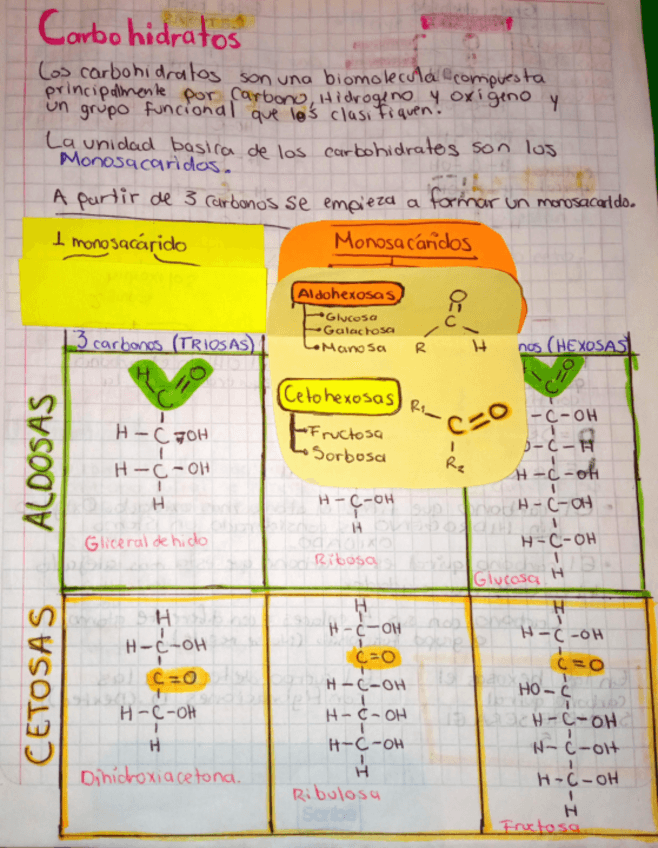 Carbohidratos
Los carbohidratos son una biomolecula compuesta
principalmente por Carbono, Hidrogeno y oxigeno y
un grupo funcional que los clasifiquen.
La unidad basica de los carbohidratos son los
Monosacaridos.
A partir de 3 carbonos se empieza a formar un monosacarido.
1 monosacárido
Monosacáridos
Aldohexosas
Glucosa
Galactosa
Manosa
O
C
R H
Cetohexosas
Fructosa
Sorbosa
R1
C=O
R2
3 carbonos (TRIOSAS)
nos (HEXOSAS)
ALDOSAS
H O
C
H-C-OH
H-C-OH
H
Gliceraldehido
H-C-OH
H
Ribosa
C=O
-C-OH
O-C-H
H-C-OH
H-C-OH
H-C-OH
H
Glucosa
CETOSAS
H
H-C-OH
C=O
H-C-OH
H
Dihidroxiacetona.
H
H-C-OH
C=O
H-C-OH
H-C-OH
H-C-OH
H
Ribulosa
H
H-C-OH
C=O
HO-C
H-C-OH
H-C-OH
H-C-OH
H
Fructosa